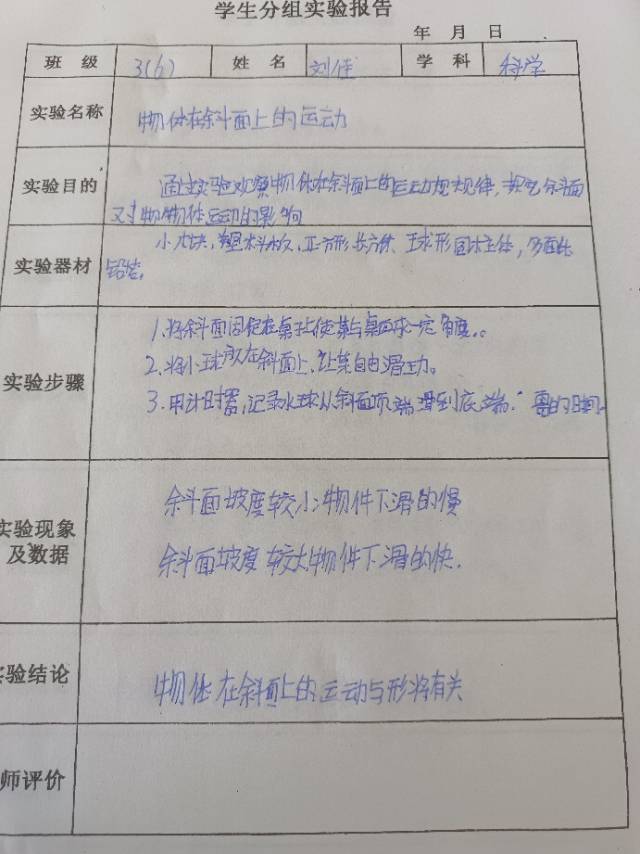 学生分组实验报告
年 月 日
班 级 3(6) 姓 名 刘佳 学 科 科学
实验名称 物体在斜面上的运动
实验目的 通过实验观察物体在斜面上的运动规律,探究斜面
对物体运动的影响
实验器材 小木块,塑料板,正方形长方体 球形圆柱体,多面体
铅笔。
实验步骤 1.将斜面固定在桌子上使其与桌面成一定角度。
2.将小球放在斜面上,让其自由滑动。
3.用计时器,记录小球从斜面顶端滑到底端 要的时间
实验现象
及数据
斜面坡度较小物件下滑的慢
斜面坡度较大物件下滑的快.
实验结论 物体在斜面上的运动与形状有关
师评价